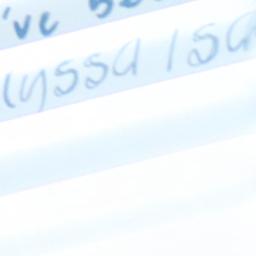 've
lyssa Isa